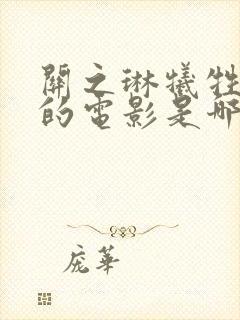 關之琳犧牲
的電影是哪
庞華